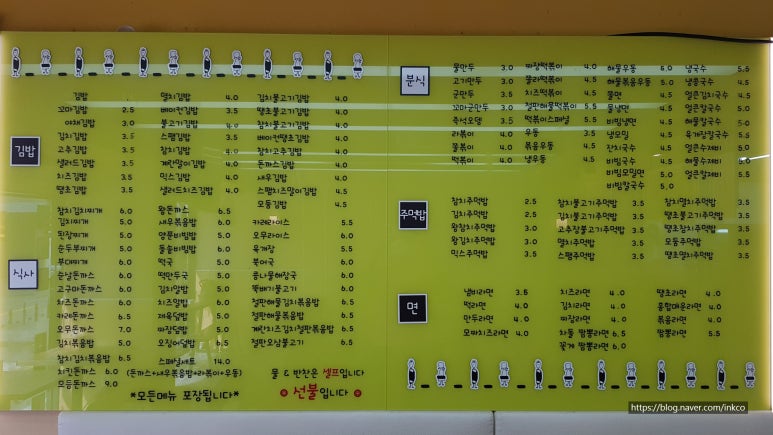 김밥
김밥
꼬마김밥 2.5
야채김밥 3.0
김치김밥 3.5
고추김밥 3.5
샐러드김밥 3.5
치즈김밥 3.5
땡초김밥 3.5
멸치김밥 4.0
베이컨김밥 3.5
불고기김밥 4.0
스팸김밥 3.5
참치김밥 4.0
계란말이김밥 4.0
믹스김밥 4.0
샐러드치즈김밥 4.0
김치불고기김밥 4.0
땡초불고기김밥 4.0
참치불고기김밥 4.0
베이컨땡초김밥 4.0
참치고추김밥 4.0
돈까스김밥 4.0
새우김밥 4.0
스팸치즈말이김밥 4.5
모둠김밥 4.5
식사
참치김치찌개 6.0
김치찌개 5.0
된장찌개 5.0
순두부찌개 5.0
부대찌개 6.0
순살돈까스 6.0
고구마돈까스 6.0
치즈돈까스 6.0
카레돈까스 6.5
오무돈까스 7.0
김치볶음밥 5.0
참치김치볶음밥 6.5
치킨돈까스 6.0
모듬돈까스 9.0
왕돈까스 6.5
새우볶음밥 6.0
양푼비빔밥 5.0
돌솥비빔밥 6.0
떡국 5.0
떡만두국 5.0
김치알밥 6.0
치즈알밥 6.0
제육덮밥 5.0
짜장덮밥 5.0
오징어덮밥 6.5
스페셜세트 14.0
(돈까스+새우볶음밥+라볶이+우동)
카레라이스 5.5
오무라이스 6.0
육개장 5.5
북어국 6.0
콩나물해장국 6.0
뚝배기불고기 6.0
철판해물김치볶음밥 6.5
철판해물볶음밥 6.5
계란치즈김치철판볶음밥 6.5
철판오삼불고기 6.5
물 & 반찬은 셀프입니다
*모든메뉴 포장됩니다*
선불입니다
분식
물만두 3.0
고기만두 3.5
군만두 3.5
꼬마군만두 3.5
즉석오뎅 3.5
라볶이 4.0
쫄볶이 4.0
떡볶이 4.0
짜장떡볶이 4.5
쫄라떡볶이 4.5
치즈떡볶이 4.5
철판해물떡볶이 5.5
떡볶이스페셜 5.5
우동 3.5
볶음우동 4.5
냄우동 4.5
해물우동 5.0
해물볶음우동 5.0
쫄면 4.5
물냉면 4.5
비빔냉면 4.5
냉모밀 4.5
잔치국수 4.5
비빔국수 4.5
비빔모밀면 5.0
비빔칼국수 5.0
냉국수 5.5
냉콩국수 4.5
얼큰김치국수 4.5
얼큰칼국수 5.0
해물칼국수 5.0
육개장칼국수 5.5
얼큰수제비 5.0
해물수제비 5.0
얼큰칼제비 5.5
주먹밥
참치주먹밥 2.5
김치주먹밥 2.5
왕참치주먹밥 3.0
왕김치주먹밥 3.0
믹스주먹밥 3.5
참치불고기주먹밥 3.5
김치불고기주먹밥 3.5
고추장불고기주먹밥 3.5
멸치주먹밥 3.5
스팸주먹밥 3.5
참치멸치주먹밥 3.5
땡초불고기주먹밥 3.5
땡초참치주먹밥 3.5
모둠주먹밥 3.5
땡초멸치주먹밥 3.5
면
냄비라면 3.5
떡라면 4.0
만두라면 4.0
모짜치즈라면 4.0
치즈라면 4.0
김치라면 4.0
짜장라면 4.0
차돌 짬뽕라면 6.5
꽃게 짬뽕라면 6.0
땡초라면 4.0
홍합매운라면 4.0
볶음라면 4.0
짬뽕라면 5.5
https://blog.naver.com/inkco